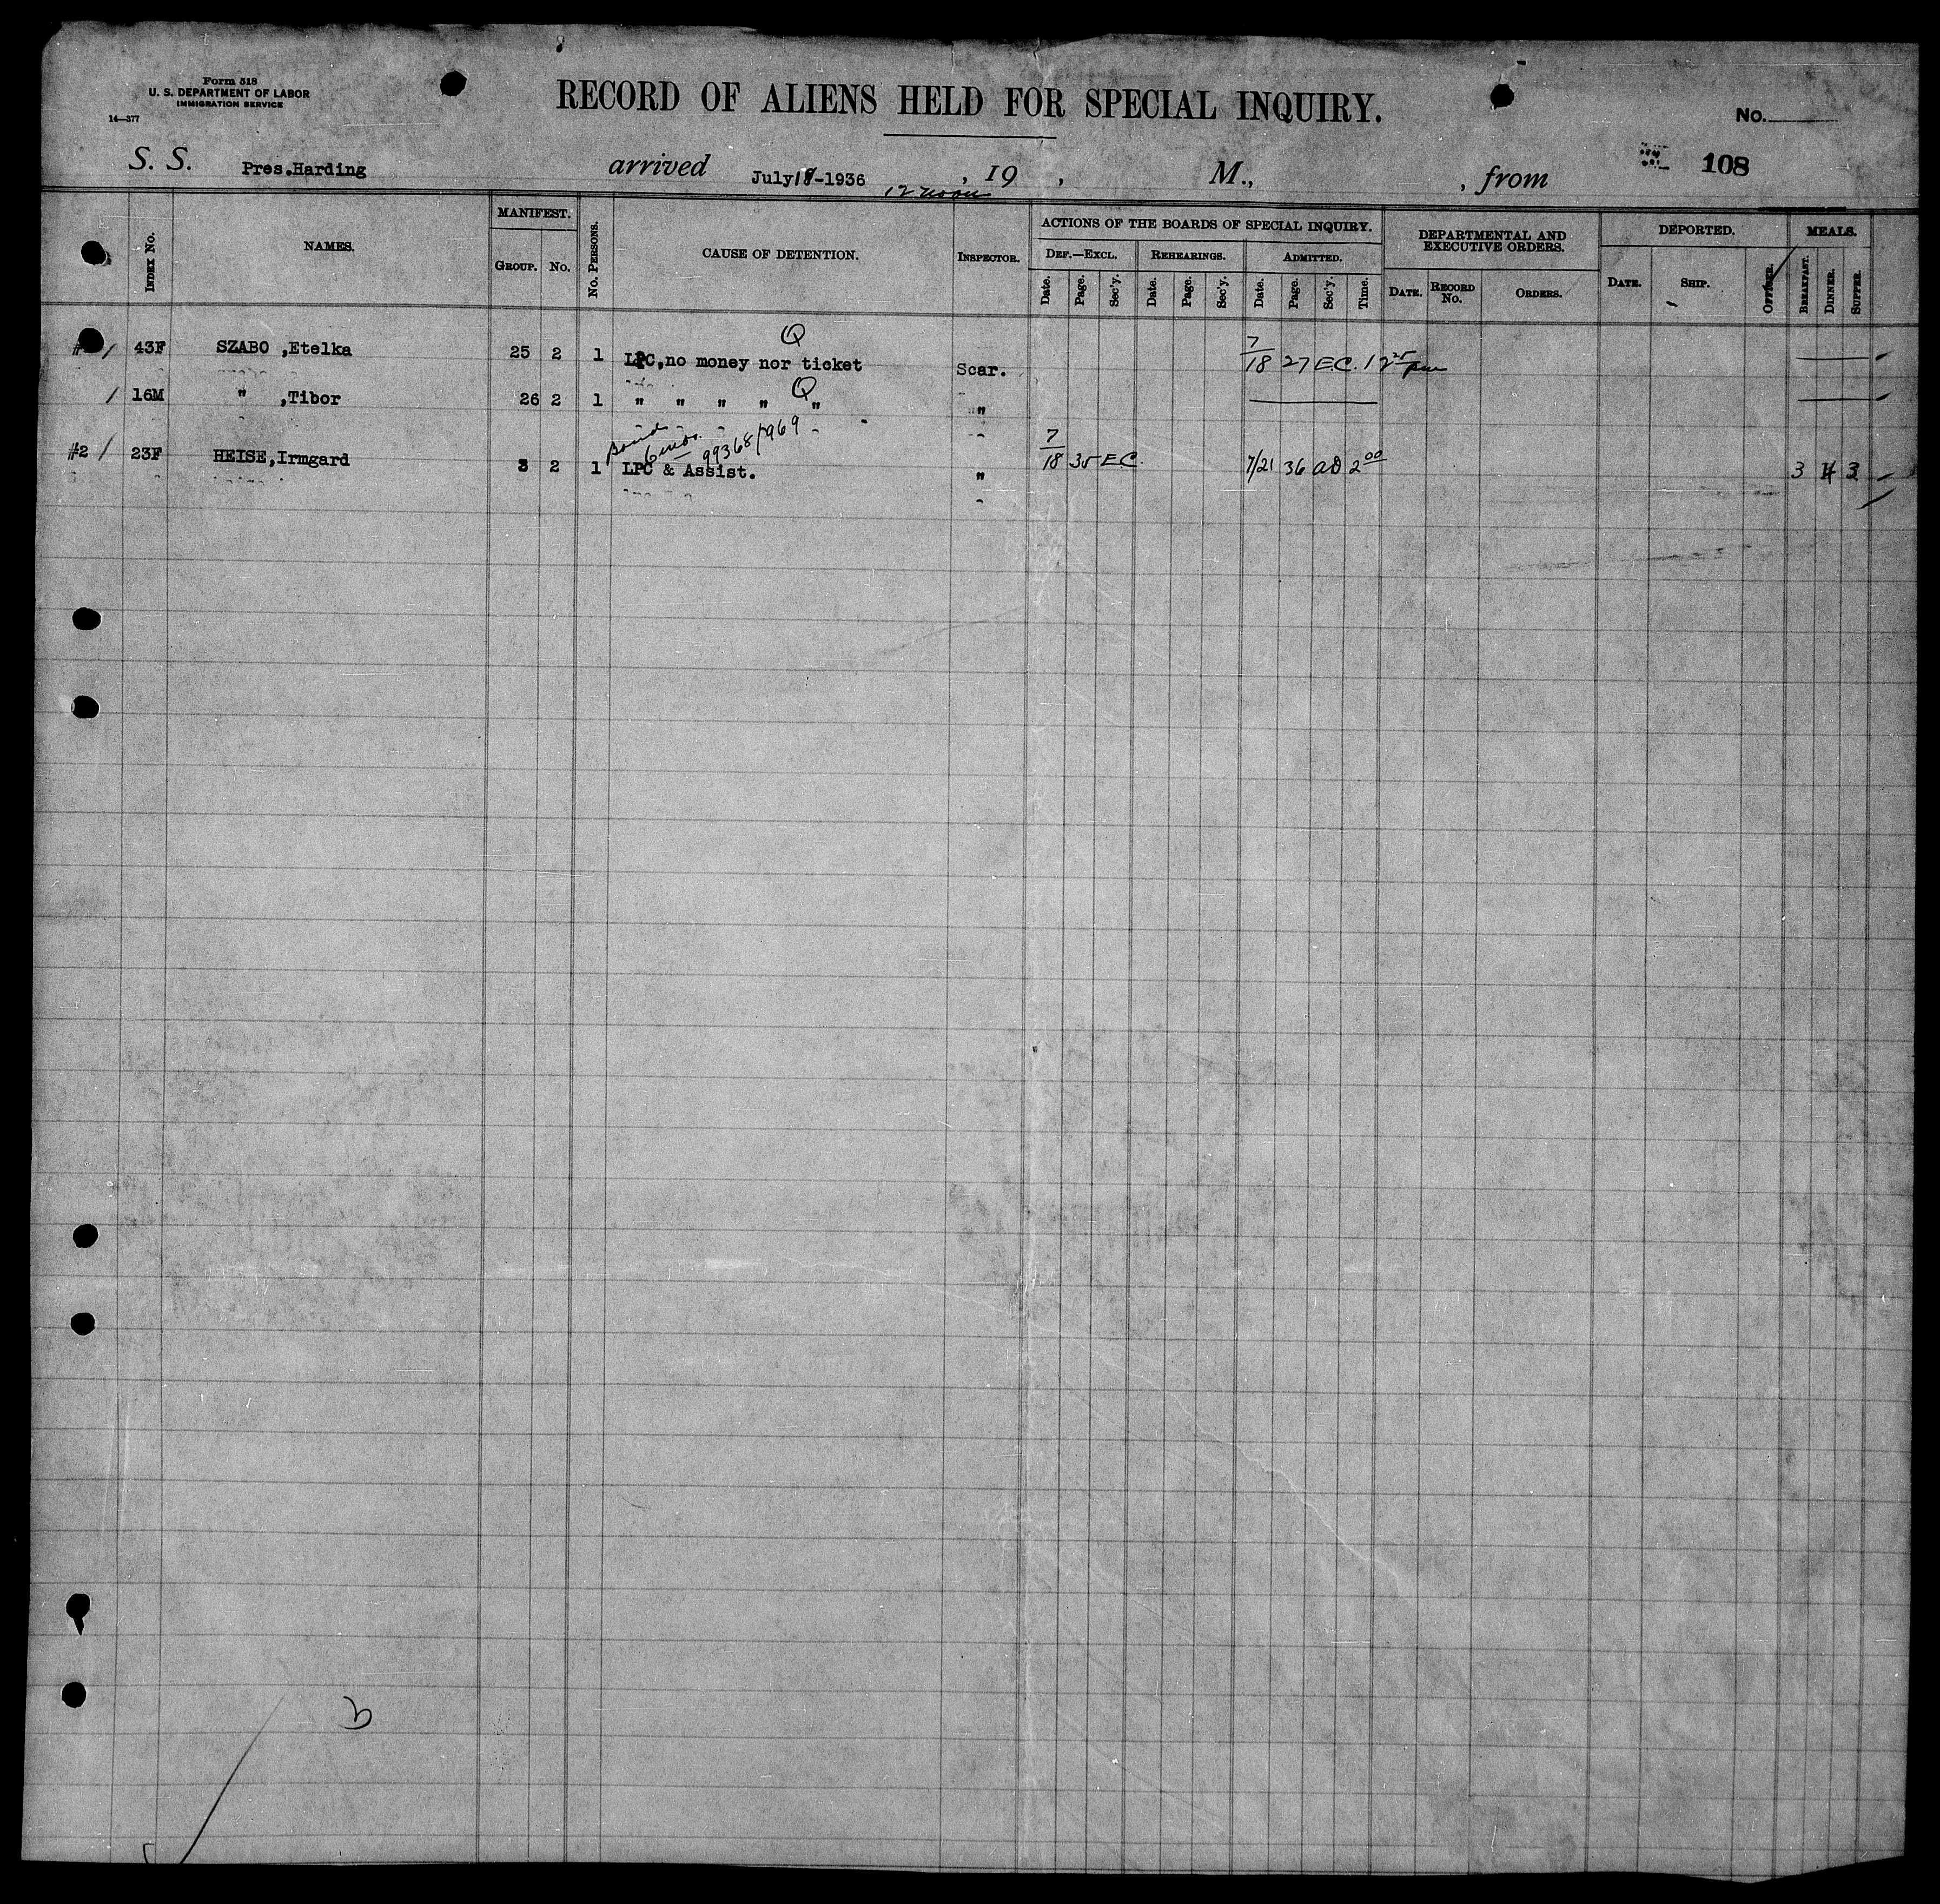 Form 518
U. S. DEPARTMENT OF LABOR
IMMIGRATION SERVICE
14—377
RECORD OF ALIENS HELD FOR SPECIAL INQUIRY.
No.
108
S. S. Pres.Harding arrived July 18-1936 , 19 , M., , from
12 noon
INDEX No. NAMES. MANIFEST. GROUP. No. No. PERSONS. CAUSE OF DETENTION. INSPECTOR. ACTIONS OF THE BOARDS OF SPECIAL INQUIRY. DEF.—EXCL. Date. Page. Sec'y. REHEARINGS. Date. Page. Sec'y. ADMITTED. Date. Page. Sec'y. Time. DEPARTMENTAL AND EXECUTIVE ORDERS. DATE. RECORD No. ORDERS. DEPORTED. DATE. SHIP. OFFICER. MEALS. BREAKFAST. DINNER. SUPPER.
Q
/ 43F SZABO ,Etelka 25 2 1 LPC,no money nor ticket Scar. 7/18 27 E.C. 12 25 pm
/ 16M " ,Tibor 26 2 1 " " " " Q " "
Bond 6 mos. 99368/969
#2 / 23F HEISE,Irmgard 3 2 1 LPC & Assist. " 7/18 35 E.C. 7/21 36 2 00 3 4 3